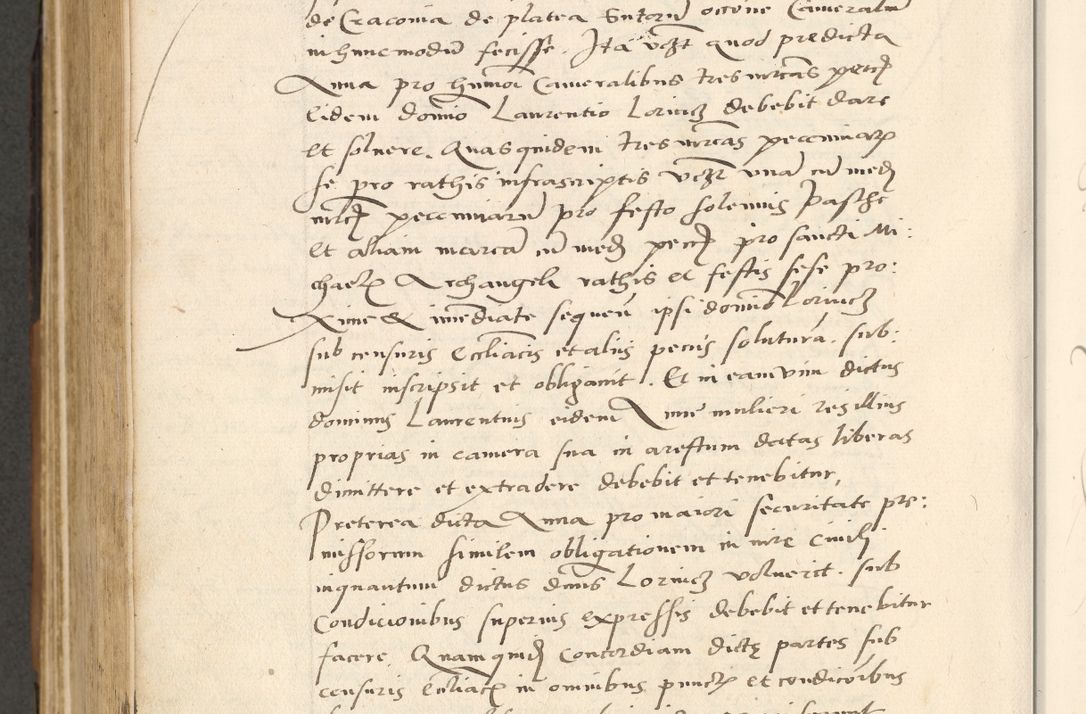 de Cracovia de platea Sutorum occone Cameralium
in hunc modum fecisse. Ita vczt quod predicta
Anna pro humoi Cameralibus tres mrcas pecc
Eidem domino Laurentio Loricz debebit dare
et solvere. Quas quidem tres mrcas pecuniar
se pro rathis infrascriptis vczt unam cum med
mrc pecuniarum pro festo solennis Pasche
Et aliam marcam cum med pecc pro sancti Mi:
chael Archangeli rathis et festis sese pro:
xime & immediate sequen ipsi domino Loricz
sub censuris Eccliacis et aliis penis solutura. sub:
misit inscripsit et obligavit. Et in eam vim dictus
dominus Laurentius eidem Anne mulieri res illius
proprias in camera sua in arestum datas liberas
dimittere et extradere debebit et tenebitur,
Preterea dicta Anna pro maiori securitate pre:
missorum similem obligationem in iure civili
inquantum dictus dnus Loricz voluerit. sub
Condicionibus superius expressis debebit et tenebitur
facere. Quamquid Concordiam dicte partes sub
censuris Ecliac in omnibus punct et condicoibus